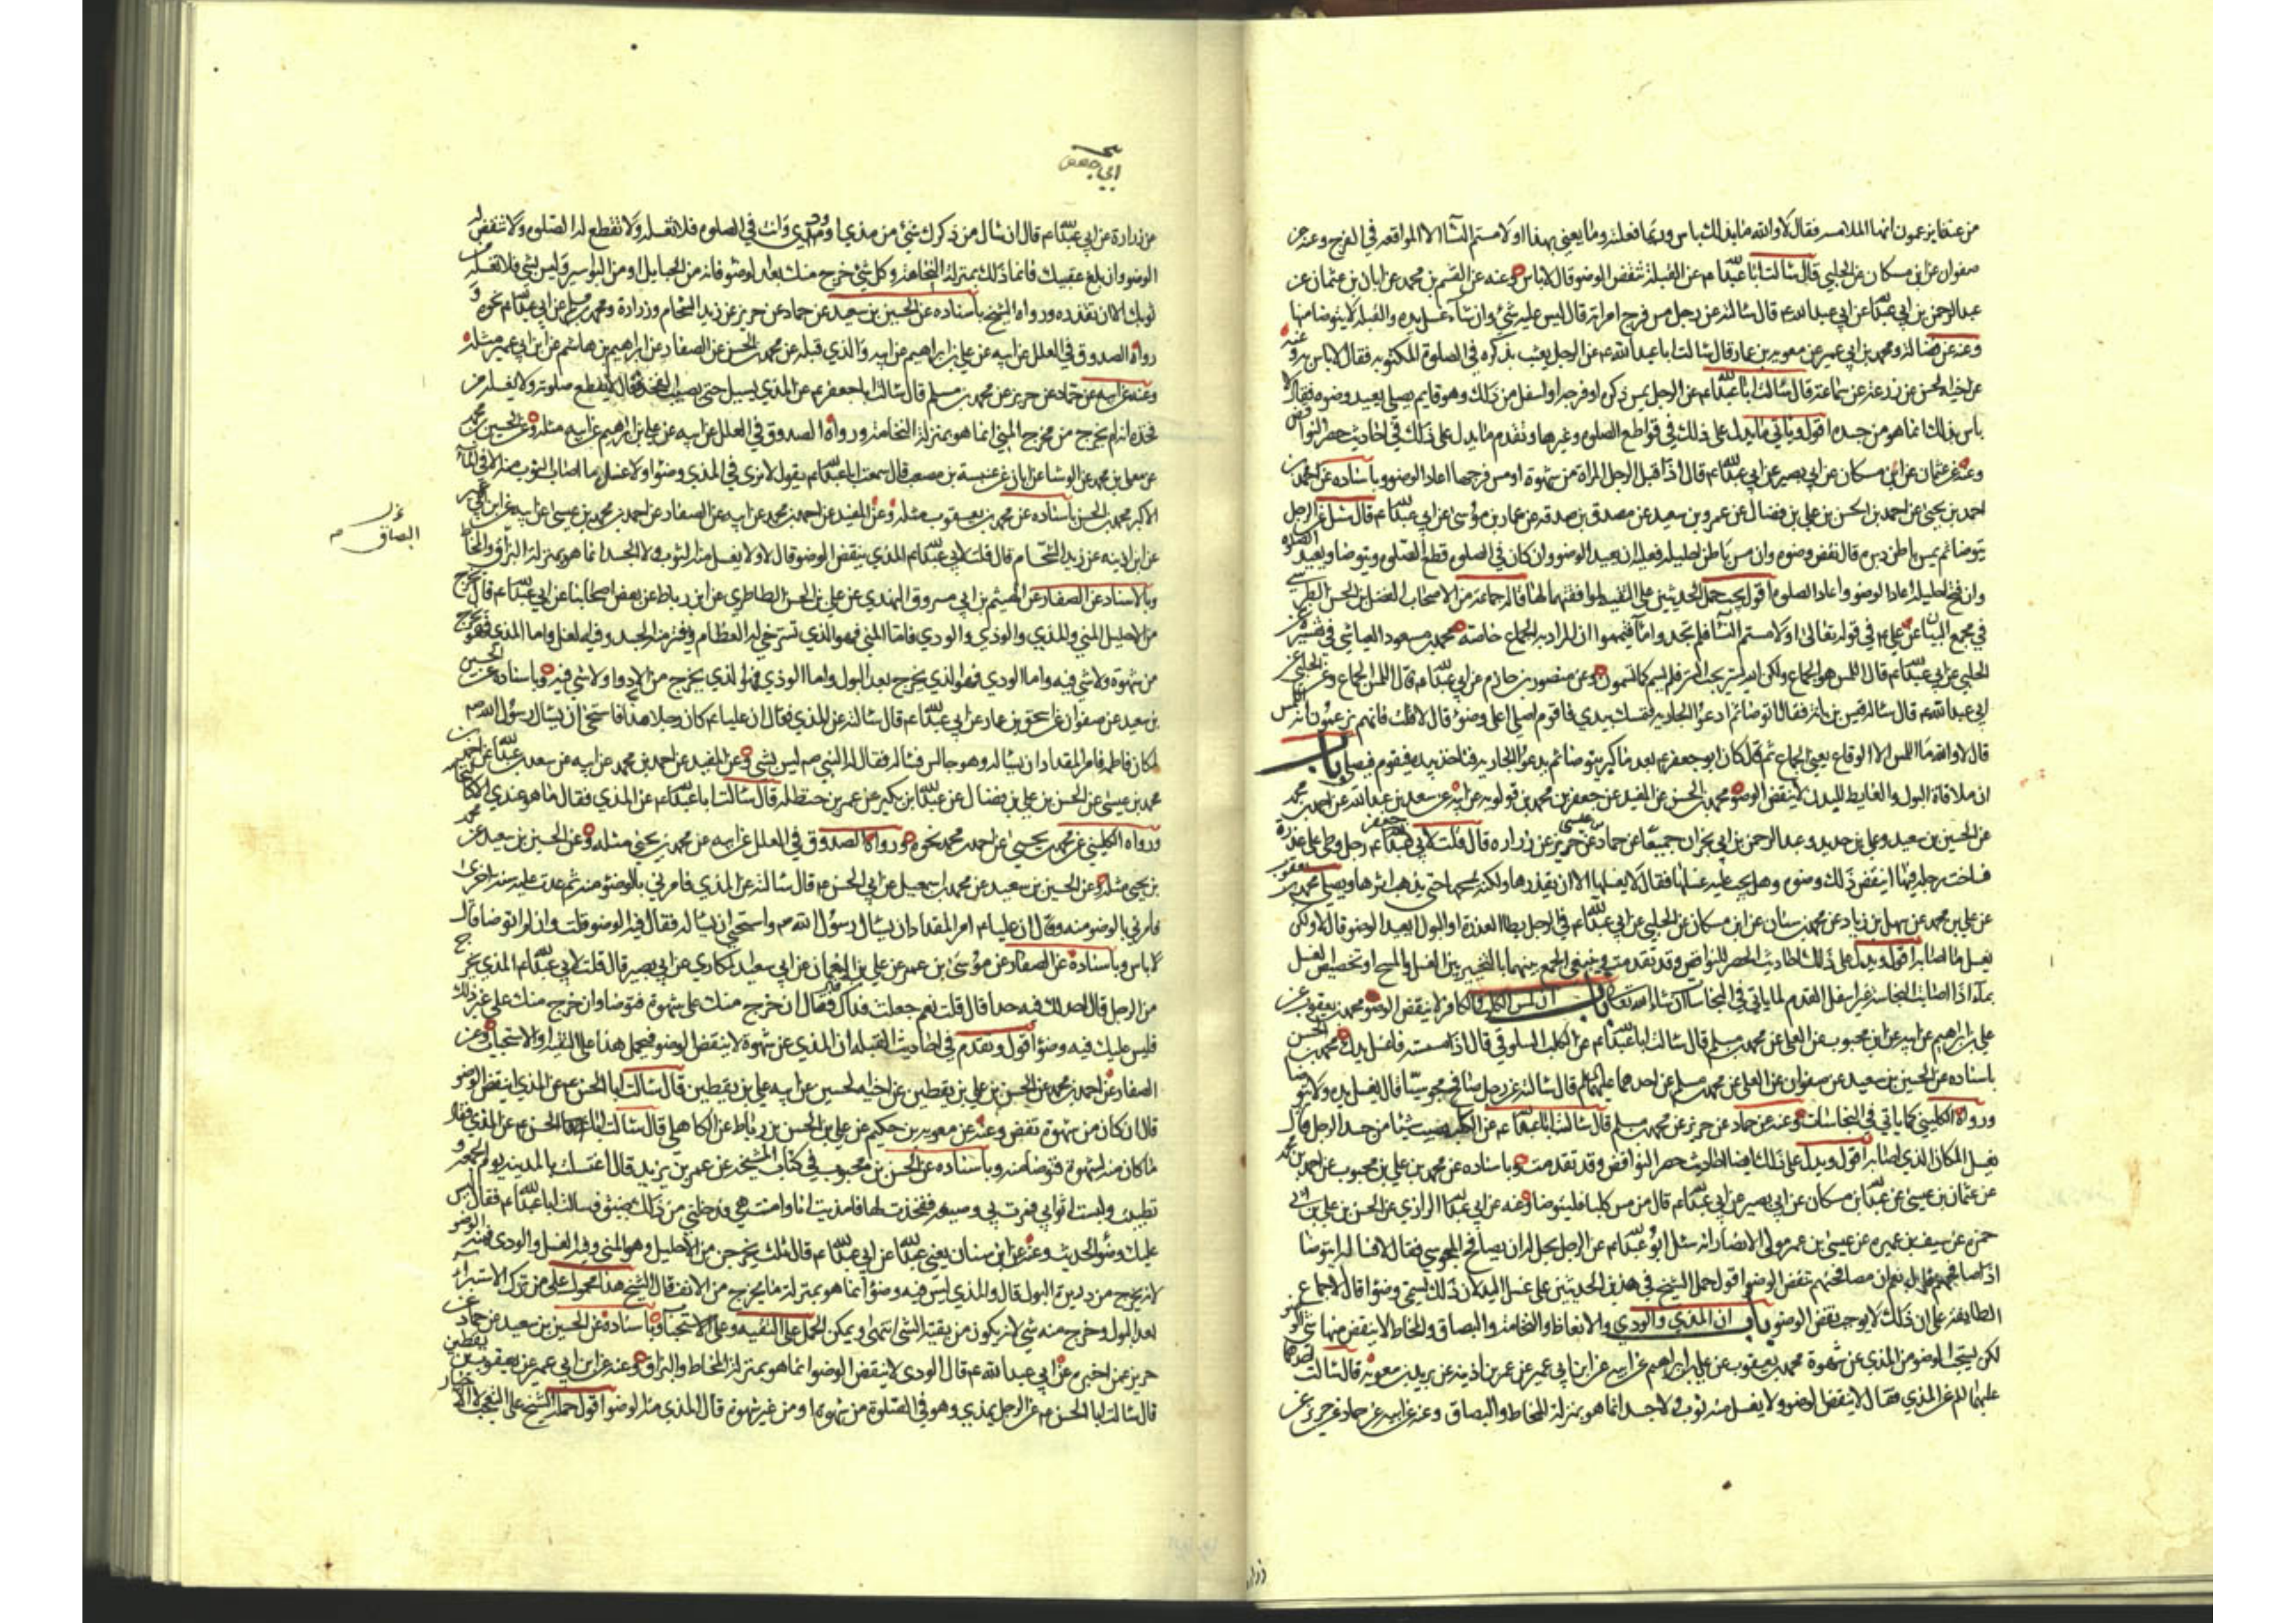 من عندنا يزعمون انها الملامسه فقال لا والله ما بذلك باس وربما فعلته وما يعني بهذا او لامستم النسآ الا المواقعه في الفرج وعنه عن
صفوان عن ابن مسكان عن الحلبي قال سالت ابا عبدالله ع عن القبلة تنقض الوضو قال لا باس وعنه عن القسم بن محمد عن ابان بن عثمان عن
عبد الرحمن بن ابي عبدالله عن ابي عبد الله ع قال سالته عن رجل مس فرج امراته قال ليس عليه شئ وان شآء غسل يده والقبلة لا يتوضا منها
وعنه عن فضالة ومحمد بن ابي عمير عن معويه بن عمار قال سالت ابا عبد الله ع عن الرجل يعبث بذكره في الصلوة المكتوبه فقال لا باس به وعنه
عن اخيه الحسن عن زرعة عن سماعة قال سالت ابا عبدالله ع عن الرجل يمس ذكره او فرجه او اسفل من ذلك وهو قايم يصلي يعيد وضوءه فقال لا
باس بذلك انما هو من جسده اقول وياتي ما يدل على ذلك في قواطع الصلوة وغيرها وتقدم ما يدل على ذلك في احاديث حصر النواقض
وعنه عن عثمان عن ابن مسكان عن ابي بصير عن ابي عبدالله ع قال اذا قبل الرجل المراة من شهوة او مس فرجها اعاد الوضوء وباسناده عن محمد بن
احمد بن يحيى عن احمد بن الحسن بن علي بن فضال عن عمرو بن سعيد عن مصدق بن صدقه عن عمار بن موسى عن ابي عبدالله ع قال سئل عن الرجل
يتوضا ثم يمس باطن دبره قال نقض وضوءه وان مس باطن احليله فعليه ان يعيد الوضوء وان كان في الصلوة قطع الصلوة ويتوضا ويعيد الصلوة
وان فتح احليله اعاد الوضوء واعاد الصلوة اقول يجب حمل الحديثين على التقيه لموافقتهما لها قاله جماعة من الاصحاب الفضل بن الحسن الطبرسي
في مجمع البيان عن علي ع في قوله تعالى او لامستم النسآ فلم تجدوا مآء فتيمموا ان المراد به الجماع خاصة محمد بن مسعود العياشي في تفسيره عن
الحلبي عن ابي عبدالله ع قال اللمس هو الجماع ولكن الله ستير يحب الستر فلم يسم كما تسمون وعن منصور بن حازم عن ابي عبدالله ع قال اللمس الجماع وعن الحلبي عن
ابي عبد الله ع قال ساله قيس بن رمانة فقال اتوضا ثم ادعو الجارية فتمسك بيدي فاقوم اصلي اعلي وضوء قال لا قلت فانهم يزعمون انه اللمس
قال لا والله ما اللمس الا الوقاع يعني الجماع ثم قال كان ابو جعفر ع بعد ما كبر يتوضا ثم يدعو الجارية فتاخذ بيده فيقوم فيصلي باب
ان ملاقاة البول والغايط للبدن لا ينقض الوضوء محمد بن الحسن عن المفيد عن جعفر بن محمد بن قولويه عن ابيه عن سعد بن عبد الله عن احمد بن محمد
عن الحسين بن سعيد وعلي بن حديد وعبد الرحمن بن ابي نجران جميعًا عن حماد بن عيسى عن حريز عن زراره قال قلت لابي جعفر ع رجل وطئ على عذرة
فساخت رجله فيها اينقض ذلك وضوءه وهل يجب عليه غسلها فقال لا يغسلها الا ان يقذرها ولكنه يمسحها حتى يذهب اثرها ويصلي محمد بن يعقوب
عن علي بن محمد عن سهل بن زياد عن محمد بن سنان عن ابن مسكان عن الحلبي عن ابي عبدالله ع في الرجل يطا العذرة او البول ايعيد الوضو قال لا ولكن
يغسل ما اصابه اقول ويدل على ذلك احاديث الحصر للنواقض وقد تقدمت
بمآء اذا اصابت النجاسة غير اسفل القدم لما ياتي في النجاسات ان شاء الله تعالى باب ان لمس الكلب والكافر لا ينقض الوضو محمد بن يعقوب عن
علي بن ابراهيم عن ابيه عن ابن محبوب عن العلا عن محمد بن مسلم قال سالت ابا عبدالله ع عن الكلب السلوقي قال اذا مسسته فاغسل يدك محمد بن الحسن
باسناده عن الحسين بن سعيد عن صفوان عن العلا عن محمد بن مسلم عن احدهما عليهما السلم قال سالته عن رجل صافح مجوسيًا قال يغسل يده ولا يتوضا
ورواه الكليني كما ياتي في النجاسات وعنه عن حماد عن حريز عن محمد بن مسلم قال سالت ابا عبدالله ع عن الكلب يصيب شيئا من جسد الرجل قال
يغسل المكان الذي اصابه اقول ويدل على ذلك ايضا احاديث حصر النواقض وقد تقدمت وباسناده عن محمد بن علي بن محبوب عن احمد بن محمد
عن عثمان بن عيسى عن عبدالله بن مسكان عن ابي بصير عن ابي عبدالله ع قال من مس كلبا فليتوضا وعنه عن ابي عبدالله الرازي عن الحسن بن علي بن ابي
حمزه عن سيف بن عميره عن عيسى بن عمر مولى الانصار انه سئل ابو عبدالله ع عن الرجل يحل له ان يصافح المجوسي فقال لا فساله ايتوضا
اذا صافحهم قال نعم ان مصافحتهم تنقض الوضوء اقول حمل الشيخ في هذين الحديثين على غسل اليد لان ذلك يسمى وضوءا قال لاجماع
الطايفة على ان ذلك لا يوجب نقض الوضوء باب ان المذي والودي والانعاظ والنخامة والبصاق والمخاط لا ينقض شئ منها الوضو
لكن يستحب الوضوء من المذي عن شهوة محمد بن يعقوب عن علي بن ابراهيم عن ابيه عن ابن ابي عمير عن عمر بن اذينه عن بريد بن معويه قال سالت احدهما
عليهما السلم عن المذي فقال لا ينقض الوضوء ولا يغسل منه ثوب ولا جسد انما هو بمنزلة المخاط والبصاق وعنه عن ابيه عن حماد عن حريز عن
زراره
ابي جعفر
عن زرارة عن ابي عبدالله ع قال ان سال من ذكرك شئ من مذي او ودي وانت في الصلوة فلا تغسله ولا تقطع له الصلوة ولا تنقض له
الوضوء وان بلغ عقبيك فانما ذلك بمنزلة النخامة وكل شئ خرج منك بعد الوضوء فانه من الحبايل او من البواسير وليس بشئ فلا تغسله من
ثوبك الا ان تقذره ورواه الشيخ باسناده عن الحسين بن سعيد عن حماد عن حريز عن زيد الشحام وزرارة ومحمد بن مسلم عن ابي عبدالله ع نحوه و
رواه الصدوق في العلل عن ابيه عن علي بن ابراهيم عن ابيه والذي قبله عن محمد بن الحسن عن الصفار عن ابراهيم بن هاشم عن ابن ابي عمير مثله
وعنه عن ابيه عن حماد عن حريز عن محمد بن مسلم قال سالت ابا جعفر ع عن المذي يسيل حتى يصيب الفخذ فقال لا يقطع صلوته ولا يغسله من
فخذه انه لم يخرج من مخرج المني انما هو بمنزلة النخامة ورواه الصدوق في العلل عن ابيه عن علي بن ابراهيم عن ابيه مثله وعن الحسين بن محمد
عن معلى بن محمد عن الوشا عن ابان عن عنبسة بن مصعب قال سمعت ابا عبدالله ع يقول لا نرى في المذي وضوءا ولا غسل ما اصاب الثوب منه الا في المآء
الاكبر محمد بن الحسن باسناده عن محمد بن يعقوب مثله وعن المفيد عن احمد بن محمد عن ابيه عن الصفار عن احمد بن محمد بن عيسى عن ابيه عن ابن ابي عمير
عن ابن اذينه عن زيد الشحام قال قلت لابي عبدالله ع المذي ينقض الوضوء قال لا ولا يغسل منه الثوب ولا الجسد انما هو بمنزلة البزاق والمخاط
البصاق
وبالاسناد عن الصفار عن الهيثم بن ابي مسروق النهدي عن علي بن الحسن الطاطري عن ابن رباط عن بعض اصحابنا عن ابي عبدالله ع قال يخرج
من الاحليل المني والمذي والوذي والودي فاما المني فهو الذي تسترخي له العظام ويفتر منه الجسد وفيه الغسل واما المذي فهو يخرج
من شهوة ولا شئ فيه واما الودي فهو الذي يخرج بعد البول واما الوذي فهو الذي يخرج من الادواء ولا شئ فيه وباسناده عن الحسين
بن سعيد عن صفوان عن اسحق بن عمار عن ابي عبدالله ع قال سالته عن المذي فقال ان عليا ع كان رجلا مذآء فاستحيى ان يسال رسول الله ص
لمكان فاطمه فامر المقداد ان يساله وهو جالس فساله فقال له النبي ص ليس بشئ وعن المفيد عن احمد بن محمد عن ابيه عن سعد بن عبدالله عن احمد بن
محمد بن عيسى عن الحسن بن علي بن فضال عن عبدالله بن بكير عن عمر بن حنظله قال سالت ابا عبدالله ع عن المذي فقال ما هو عندي الا كالنخامه
ورواه الكليني عن محمد بن يحيى عن احمد بن محمد نحوه ورواه الصدوق في العلل عن ابيه عن محمد بن يحيى مثله وعن الحسين بن سعيد عن محمد
بن يحيى مثله وعن الحسين بن سعيد عن محمد بن اسمعيل عن ابي الحسن ع قال سالته عن المذي فامرني بالوضوء منه ثم عدت عليه سنه اخرى
فامرني بالوضوء منه وقال ان عليا ع امر المقداد ان يسال رسول الله ص واستحيى ان يساله فقال فيه الوضوء قلت وان لم اتوضا قال
لا باس وباسناده عن الصفار عن موسى بن عمر عن علي بن النعمان عن ابي سعيد المكاري عن ابي بصير قال قلت لابي عبدالله ع المذي يخرج
من الرجل قال احد لك فيه حدا قال قلت نعم جعلت فداك فقال ان خرج منك على شهوة فتوضا وان خرج منك على غير ذلك
فليس عليك فيه وضوء اقول وتقدم في احاديث القبله ان المذي عن شهوة لا ينقض الوضوء فيحمل هذا على التقية او الاستحباب وعن
الصفار عن احمد بن محمد عن الحسن بن علي بن يقطين عن اخيه الحسين عن ابيه علي بن يقطين قال سالت ابا الحسن ع عن المذي اينقض الوضو
قال ان كان من شهوة نقض وعنه عن معويه بن حكيم عن علي بن الحسن بن رباط عن الكاهلي قال سالت ابا الحسن ع عن المذي فقال
ما كان منه لشهوة فتوضا منه وباسناده عن الحسن بن محبوب في كتاب المشيخه عن عمر بن يزيد قال اغتسلت بالمدينه يوم الجمعه و
تطيبت ولبست اثوابي فمرت بي وصيفه ففخذت لها فامذيت انا وامنت هي فدخلني من ذلك ضيق فسالت ابا عبدالله ع فقال ليس
عليك وضوء الحديث وعنه عن ابن سنان يعني عبدالله عن ابي عبدالله ع قال ثلث يخرجن من الاحليل وهو المني وفيه الغسل والودي فمنه الوضو
لانه يخرج من دريرة البول قال والمذي ليس فيه وضوء انما هو بمنزلة ما يخرج من الانف قال الشيخ هذا محمول على من ترك الاستبرآء
بعد البول وخرج منه شئ لانه يكون من بقية البول ويمكن الحمل على التقيه وعلى الاستحباب وباسناده عن الحسين بن سعيد عن حماد عن
حريز عمن اخبره عن ابي عبد الله ع قال الودي لا ينقض الوضوء انما هو بمنزلة المخاط والبزاق وعنه عن ابن ابي عمير عن يعقوب بن يقطين
قال سالت ابا الحسن ع عن الرجل يمذي وهو في الصلوة من شهوة او من غير شهوة قال المذي منه الوضوء اقول حمله الشيخ على التعجب لا الاخبار